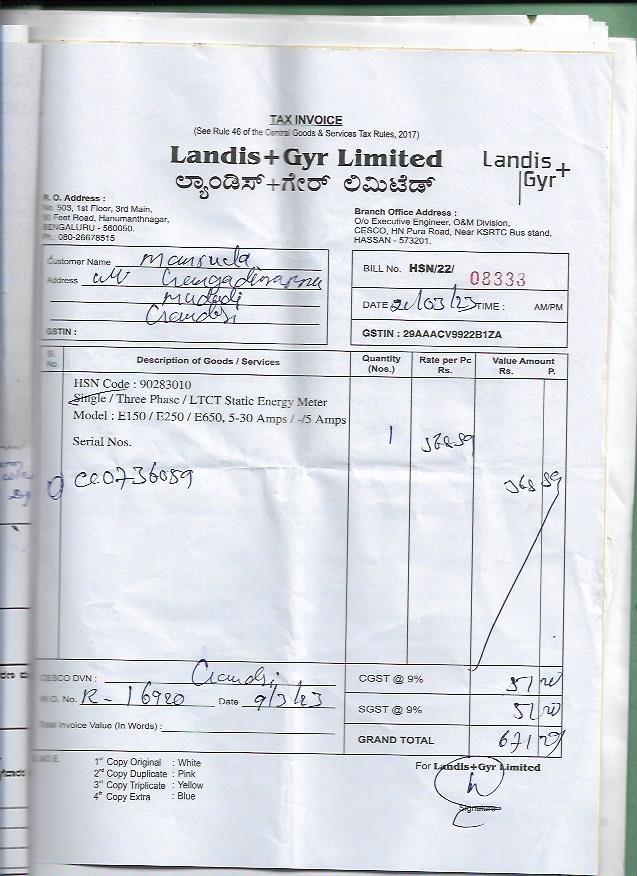 TAX INVOICE
(See Rule 46 of the Central Goods & Services Tax Rules, 2017)
Landis+Gyr Limited
ಲ್ಯಾಂಡಿಸ್+ಗೇರ್ ಲಿಮಿಟೆಡ್
Landis+
Gyr
R. O. Address :
No. 503, 1st Floor, 3rd Main,
Feet Road, Hanumanthnagar,
BENGALURU - 560050.
Ph : 080-26678515
Branch Office Address :
O/o Executive Engineer, O&M Division,
CESCO, HN Pura Road, Near KSRTC Bus stand,
HASSAN - 573201.
Customer Name Manjula
Address
GSTIN :
BILL No. HSN/22/ 08333
DATE 21/03/23 TIME : AM/PM
GSTIN : 29AAACV9922B1ZA
Sl. No. Description of Goods / Services Quantity (Nos.) Rate per Pc Rs. Value Amount Rs. P.
HSN Code : 90283010
Single / Three Phase / LTCT Static Energy Meter
Model : E150 / E250 / E650, 5-30 Amps / -/5 Amps
1
Serial Nos.
CESCO DVN :
W.O. No. R-16920 Date 9/3/23
Total Invoice Value (In Words) :
CGST @ 9% 51 20
SGST @ 9% 51 20
GRAND TOTAL 671 29
NOTE
1st Copy Original : White
2nd Copy Duplicate : Pink
3rd Copy Triplicate : Yellow
4th Copy Extra : Blue
For Landis+Gyr Limited
Signature